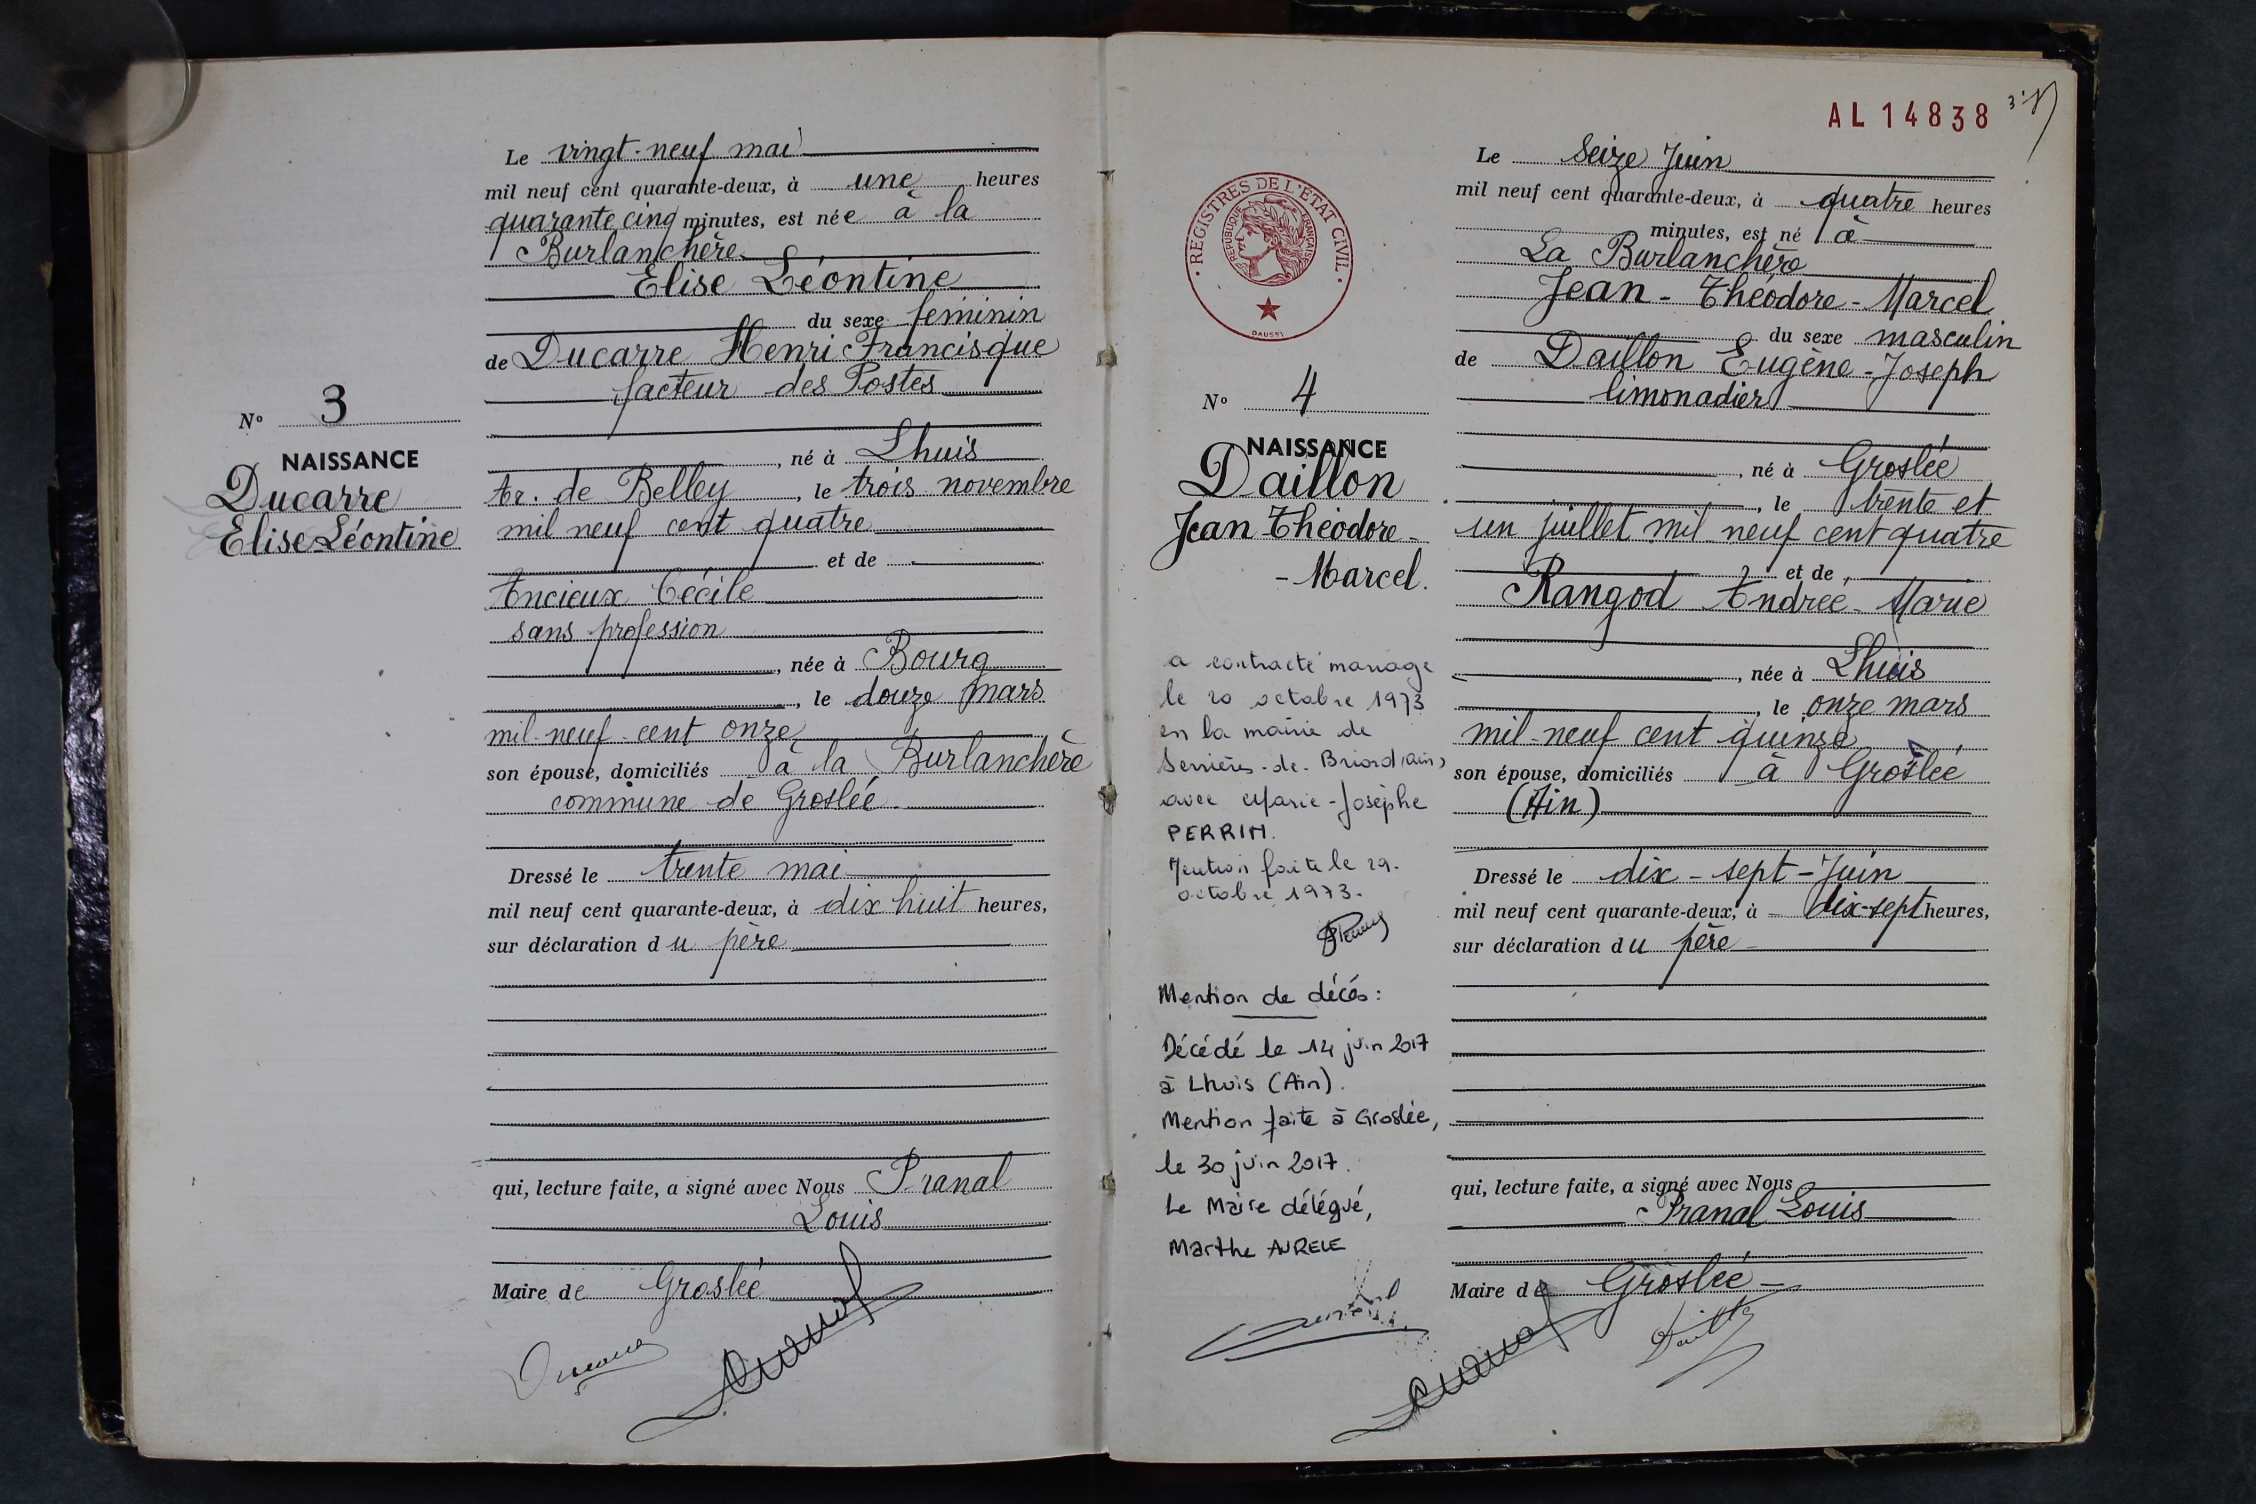 Le vingt-neuf mai
mil neuf cent quarante-deux, à une heures
quarante cinq minutes, est née à la
Burlanchère
Elise Léontine
du sexe féminin
de Ducarre Henri Francisque
facteur des Postes
, né à Lhuis
Ar. de Belley, le trois novembre
mil neuf cent quatre
et de
Ancieux Cécile
sans profession
, née à Bourg
, le douze mars
mil-neuf-cent onze
son épouse, domiciliés à la Burlanchère
commune de Groslée
Dressé le trente mai
mil neuf cent quarante-deux, à dix huit heures,
sur déclaration du père
qui, lecture faite, a signé avec Nous Pranal
Louis
Maire de Groslée
No 3
NAISSANCE
Ducarre
Elise Léontine
AL 14838
REGISTRES DE L'ETAT CIVIL
REPUBLIQUE FRANÇAISE
No 4
NAISSANCE
Daillon
Jean-Théodore-
-Marcel.
a contracté mariage
le 20 octobre 1973
en la mairie de
Serrières-de-Briord (Ain)
avec Marie-Josèphe
PERRIN.
Mention faite le 29.
octobre 1973.
Mention de décés:
Décédé le 14 juin 2017
à Lhuis (Ain).
Mention faite à Groslée,
le 30 juin 2017.
Le Maire délégué,
Marthe AURELE
Le Seize Juin
mil neuf cent quarante-deux, à quatre heures
minutes, est né à
La Burlanchère
Jean-Théodore-Marcel
du sexe masculin
de Daillon Eugène-Joseph
limonadier
, né à Groslée
, le trente et
un juillet mil neuf cent quatre
et de
Rangod Andrée-Marie
, née à Lhuis
, le onze mars
mil-neuf cent-quinze
son épouse, domiciliés à Groslée
(Ain)
Dressé le dix-sept-Juin
mil neuf cent quarante-deux, à dix-sept heures,
sur déclaration du père
qui, lecture faite, a signé avec Nous
Pranal Louis
Maire de Groslée